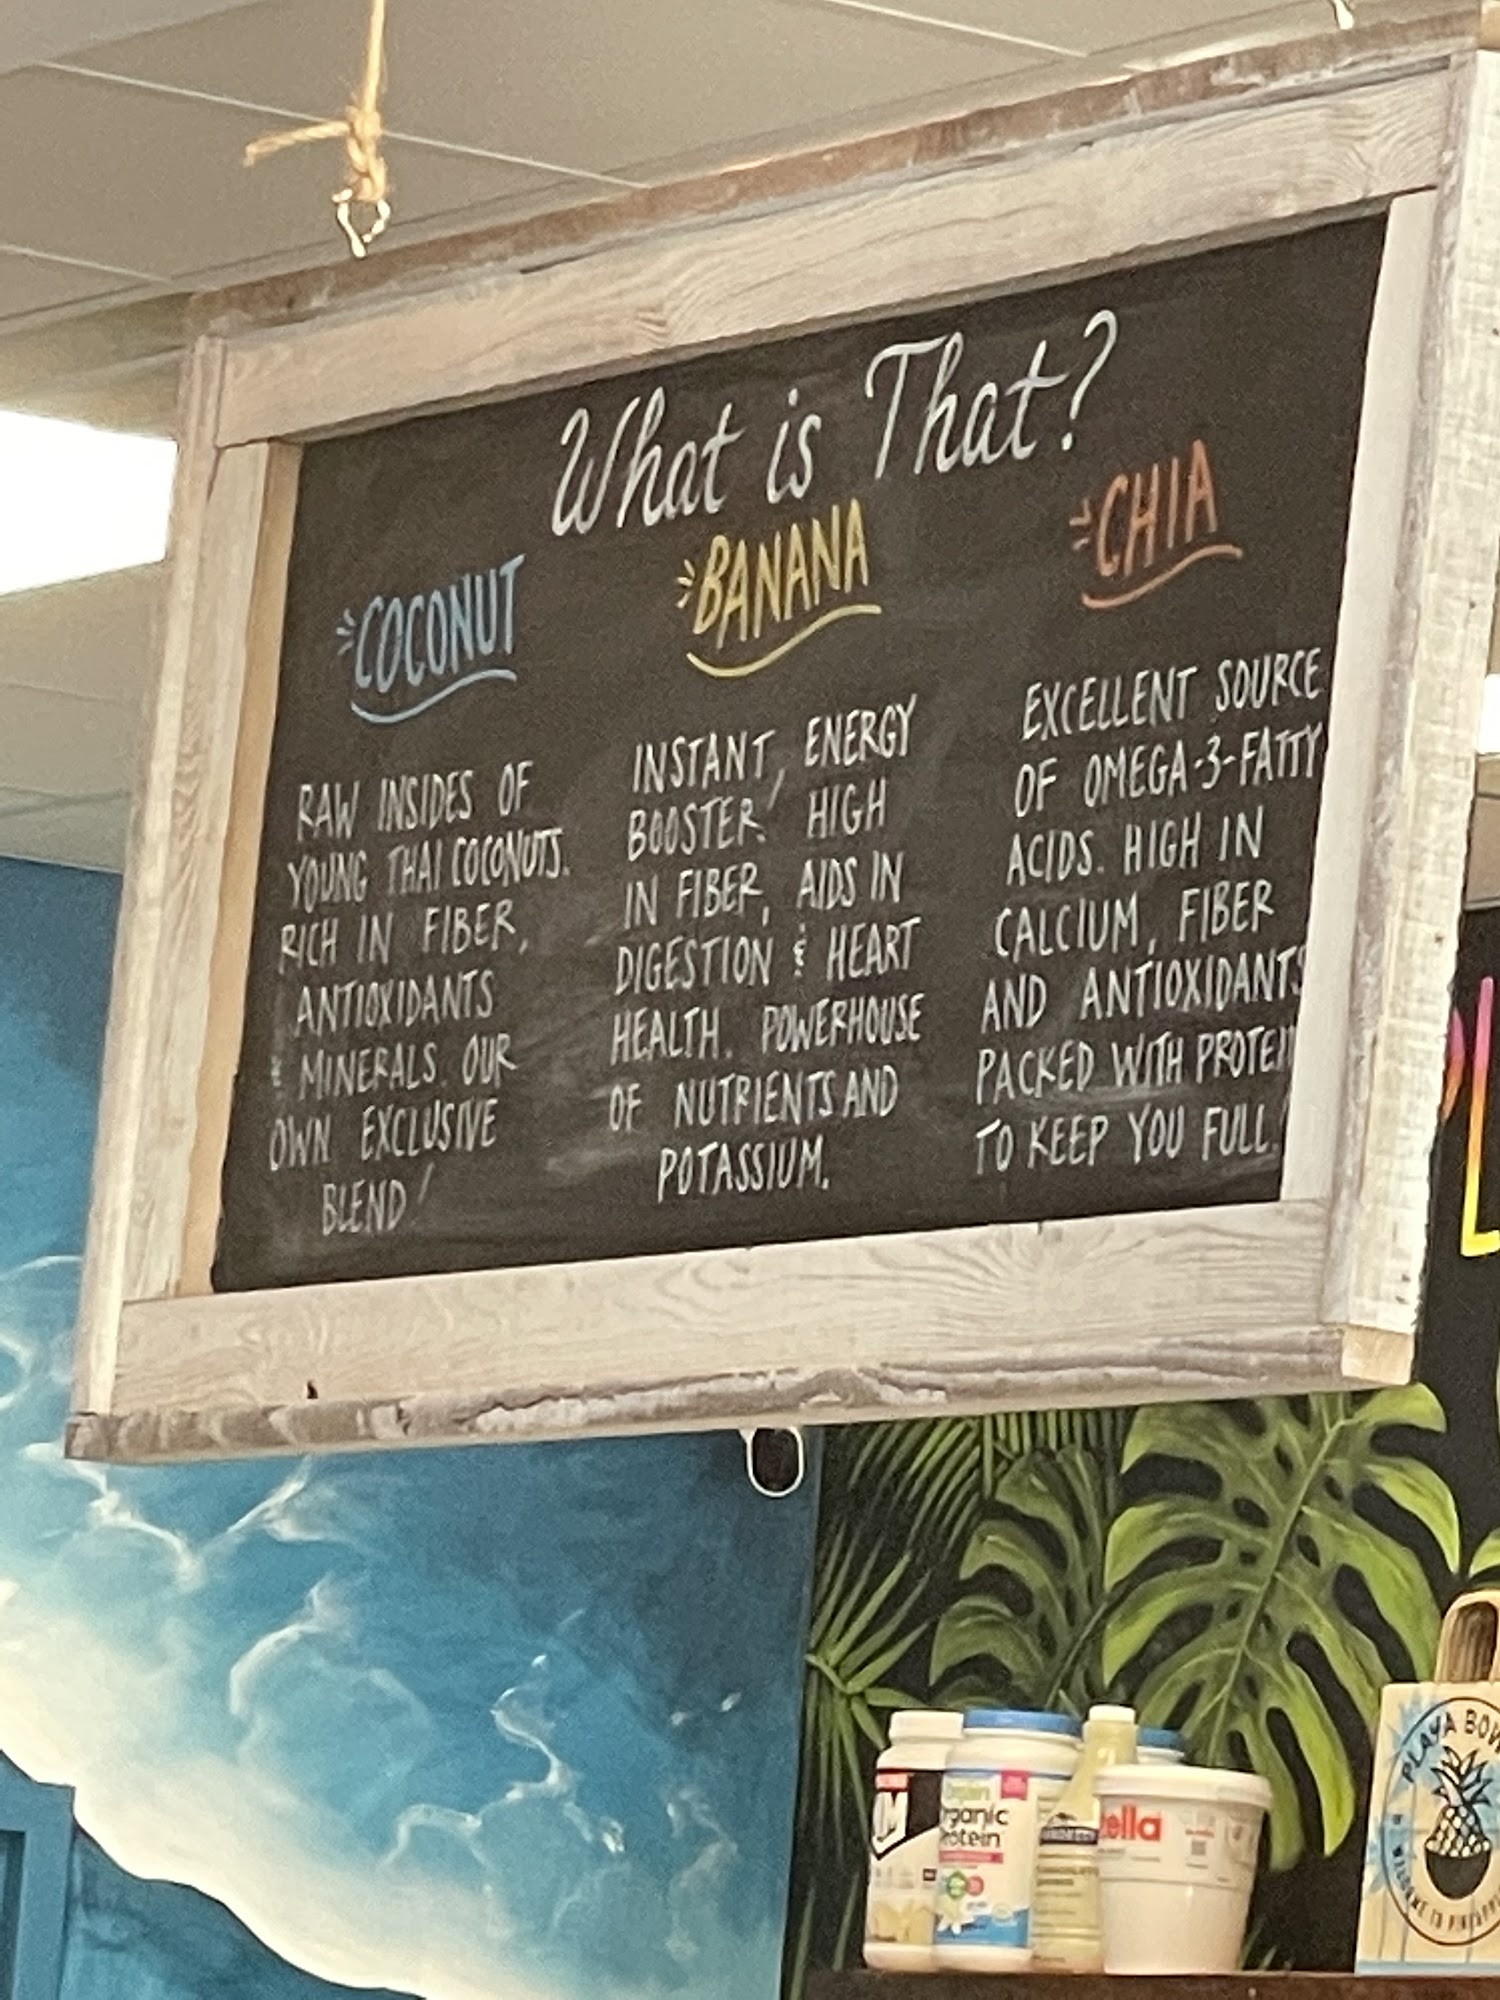 What is That?
COCONUT
RAW INSIDES OF
YOUNG THAI COCONUTS.
RICH IN FIBER,
ANTIOXIDANTS
& MINERALS. OUR
OWN EXCLUSIVE
BLEND!
BANANA
INSTANT, ENERGY
BOOSTER! HIGH
IN FIBER, AIDS IN
DIGESTION & HEART
HEALTH. POWERHOUSE
OF NUTRIENTS AND
POTASSIUM.
CHIA
EXCELLENT SOURCE
OF OMEGA-3-FATTY
ACIDS. HIGH IN
CALCIUM, FIBER
AND ANTIOXIDANTS
PACKED WITH PROTEIN
TO KEEP YOU FULL!
rganic
rotein
ella
PLAYA BOW